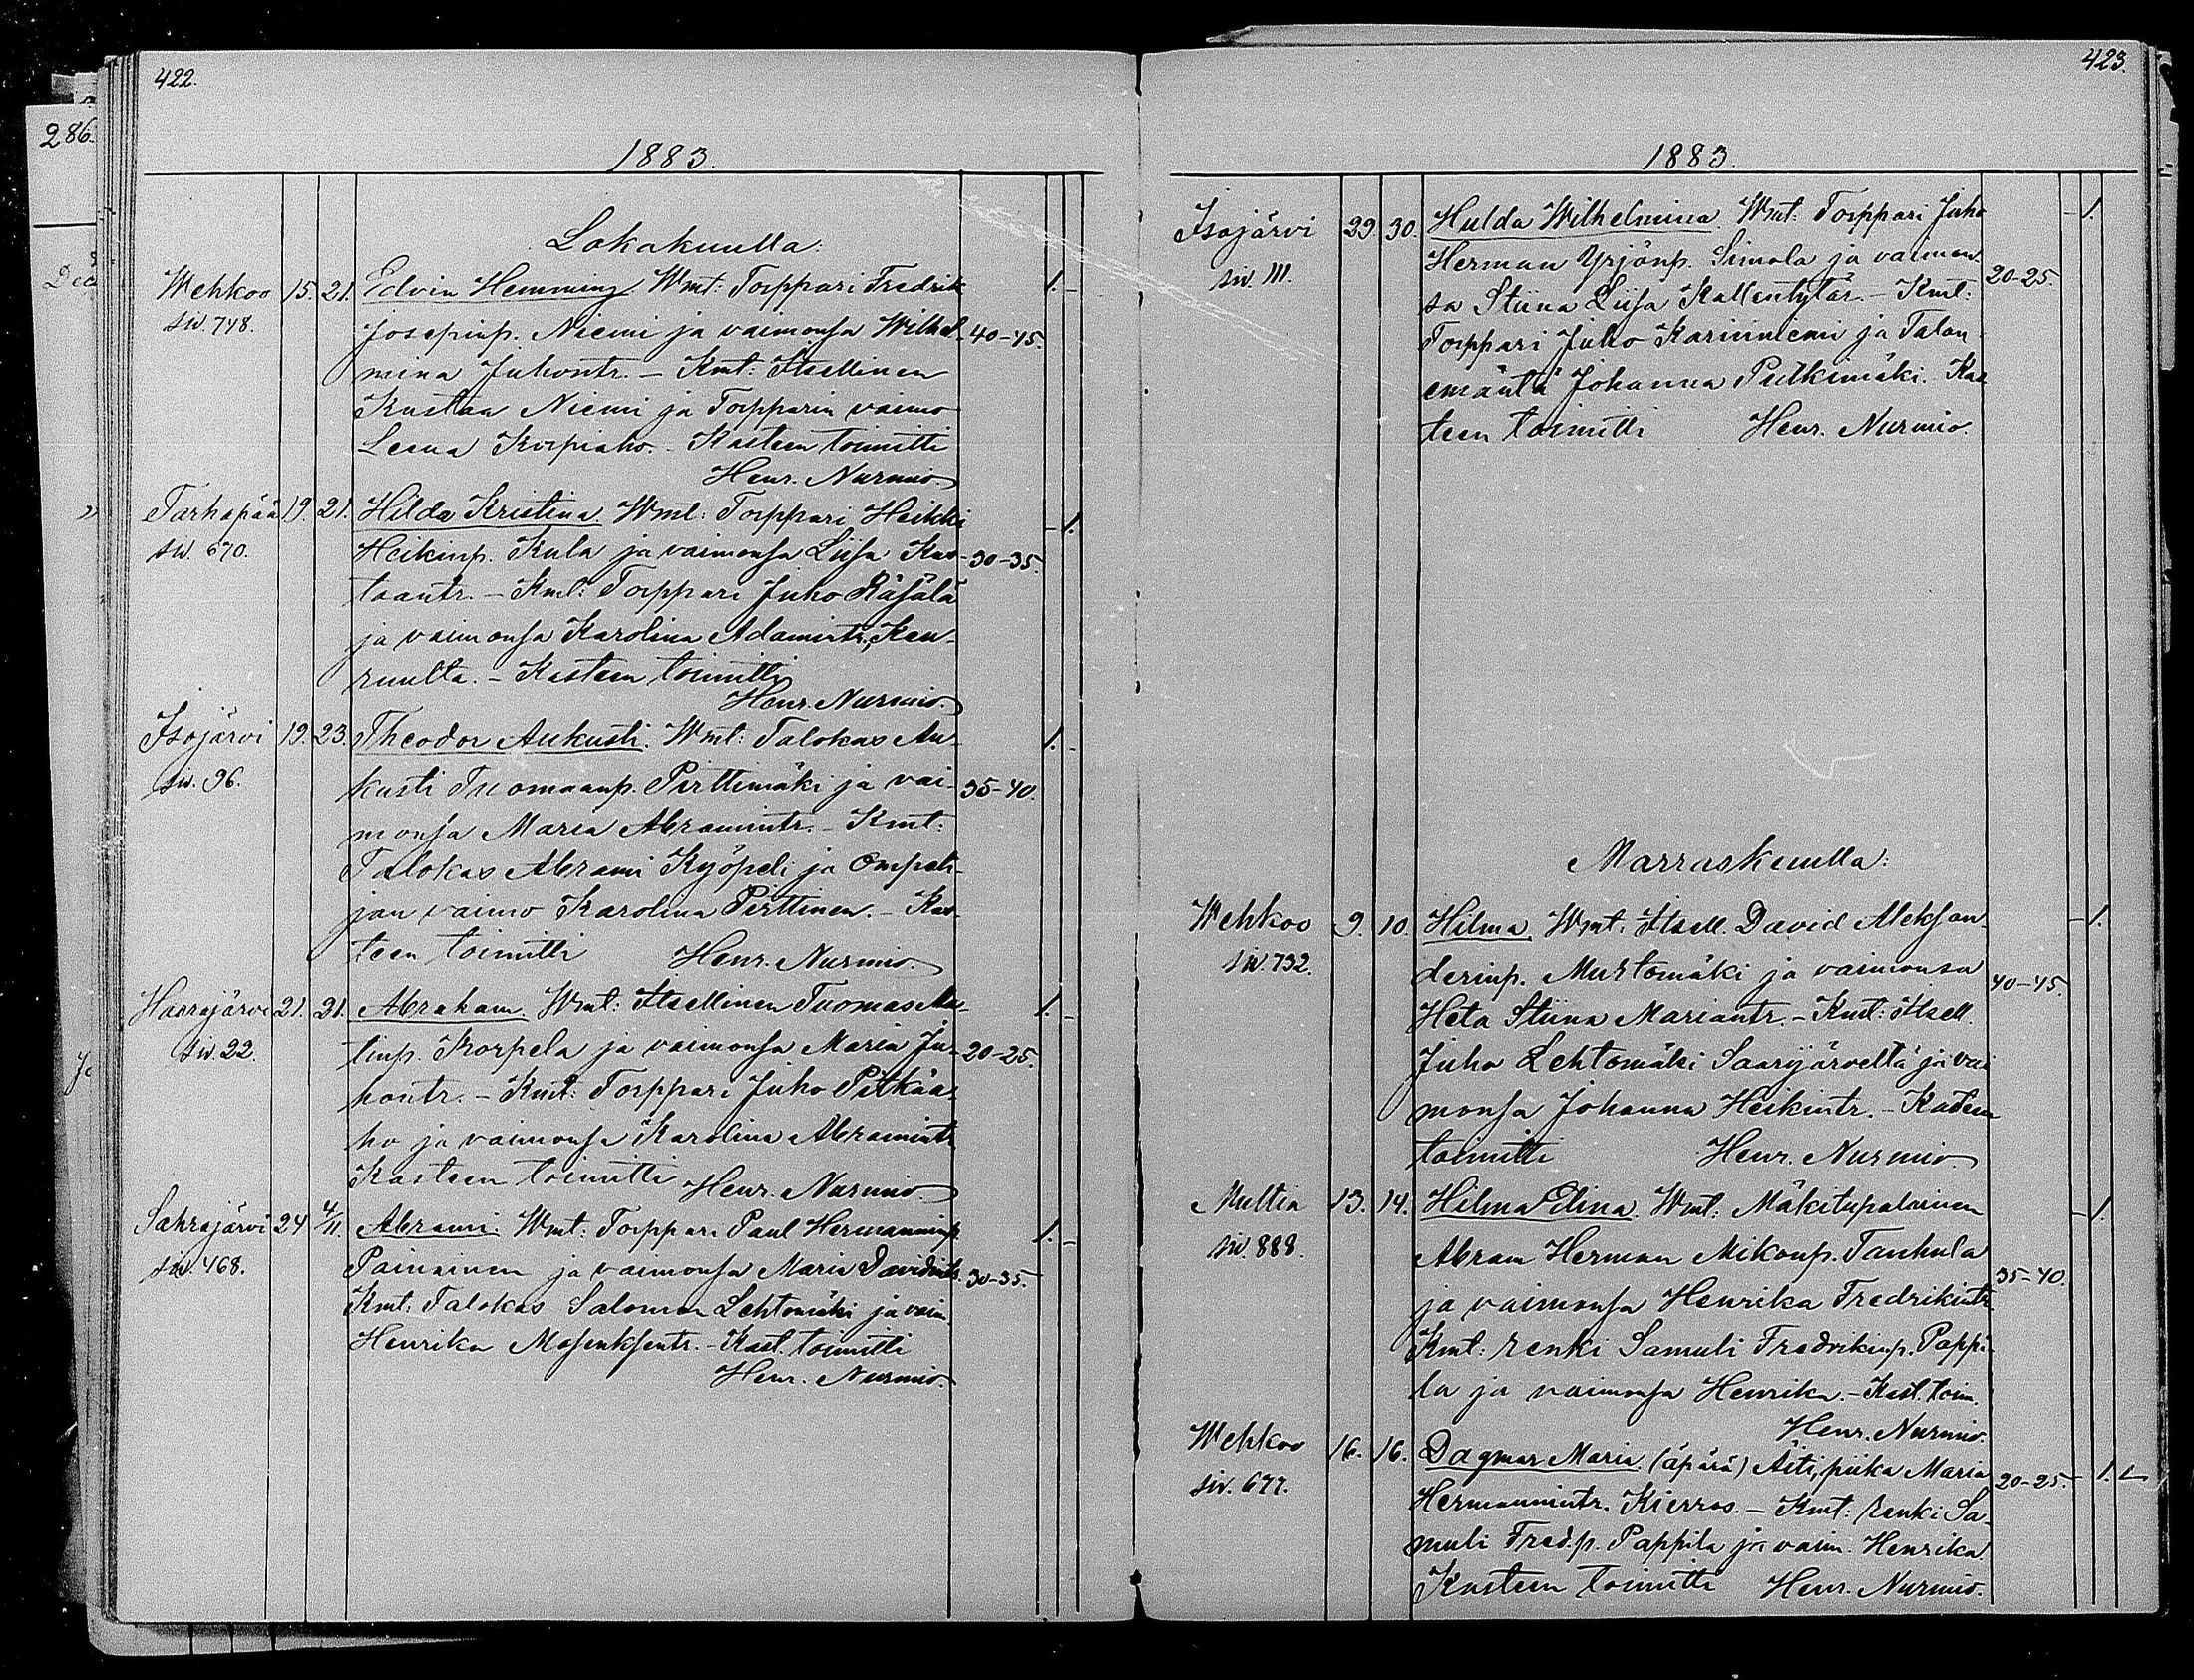 422.
286.
1883.
Lokakuulla:
Wehkoo 15. 21. Edvin Hemming. Wmt: Torppari Fredrik 1. -
siv. 748. Josepinp. Niemi ja vaimonsa Wilhel- 40-45.
mina Juhontr. - Kmt: Itsellinen
Kustaa Niemi ja Torpparin vaimo
Leena Korpiaho. - Kasteen toimitti
Henr. Nurmio.
Tarhapää 19. 21. Hilda Kristina. Wmt: Torppari Heikki - 1.
siv. 670. Heikinp. Kula ja vaimonsa Liisa Kus- 30-35.
taantr. - Kmt: Torppari Juho Räsälä
ja vaimonsa Karolina Adamintr., Keu-
ruulta. - Kasteen toimitti
Henr. Nurmio.
Isojärvi 19. 23. Theodor Aukusti. Wmt: Talokas Au- 1. -
siv. 96. kusti Tuomaanp. Pirttimäki ja vai- 35-40.
monsa Maria Abramintr. - Kmt:
Talokas Abrami Kyöpeli ja Ompeli-
jan vaimo Karolina Pirttinen. - Kas-
teen toimitti Henr. Nurmio.
Haarajärvi 21. 21. Abraham. Wmt: Itsellinen Tuomas Ma- 1. -
siv. 22. tinp. Korpela ja vaimonsa Maria Ju- 20-25.
hontr. - Kmt: Torppari Juho Pitkäa-
ho ja vaimonsa Karolina Abramintr.
Kasteen toimitti Henr. Nurmio.
Sahrajärvi 24 4/11. Abrami. Wmt: Torppari Paul Hermanninp. 1. -
siv. 468. Paininen ja vaimonsa Maria Davidintr. 30-35.
Kmt: Talokas Salomon Lehtomäki ja vaim.
Henrika Mosenksentr. - Kast. toimitti
Henr. Nurmio.
423.
1883.
Isojärvi 29 30. Hulda Wilhelmina. Wmt: Torppari Juho - 1.
siv. 111. Herman Yrjönp. Simola ja vaimon- 20-25.
sa Stiina Liisa Kallentytär. - Kmt:
Torppari Juho Kariniemi ja Talon
emäntä Johanna Putkimäki. Kas
teen toimitti Henr. Nurmio.
Marraskuulla:
Wehkoo 9. 10. Hilma. Wmt: Itsell. David Aleksan- - 1.
siv. 732. derinp. Murtomäki ja vaimonsa 40-45.
Heta Stiina Mariantr. - Kmt: Itsell.
Juho Lehtomäki Saarijärveltä ja vai
monsa Johanna Heikintr. - Kasteen
toimitti Henr. Nurmio.
Multia 13. 14. Hilma Elina. Wmt: Mäkitupalainen - 1.
siv. 888. Abram Herman Mikonp. Tanhula 35-40.
ja vaimonsa Henrika Fredrikintr.
Kmt: renki Samuli Fredrikinp. Pappi-
la ja vaimonsa Henrika. - Kast. toim.
Henr. Nurmio.
Wehkoo 16. 16. Dagmar Maria. (äpärä) Äiti, piika Maria 20-25. - 1.
siv. 677. Hermannintr. Kierros. - Kmt: renki Sa-
muli Fred.p. Pappila ja vaim. Henrika.
Kasteen toimitti Henr. Nurmio.